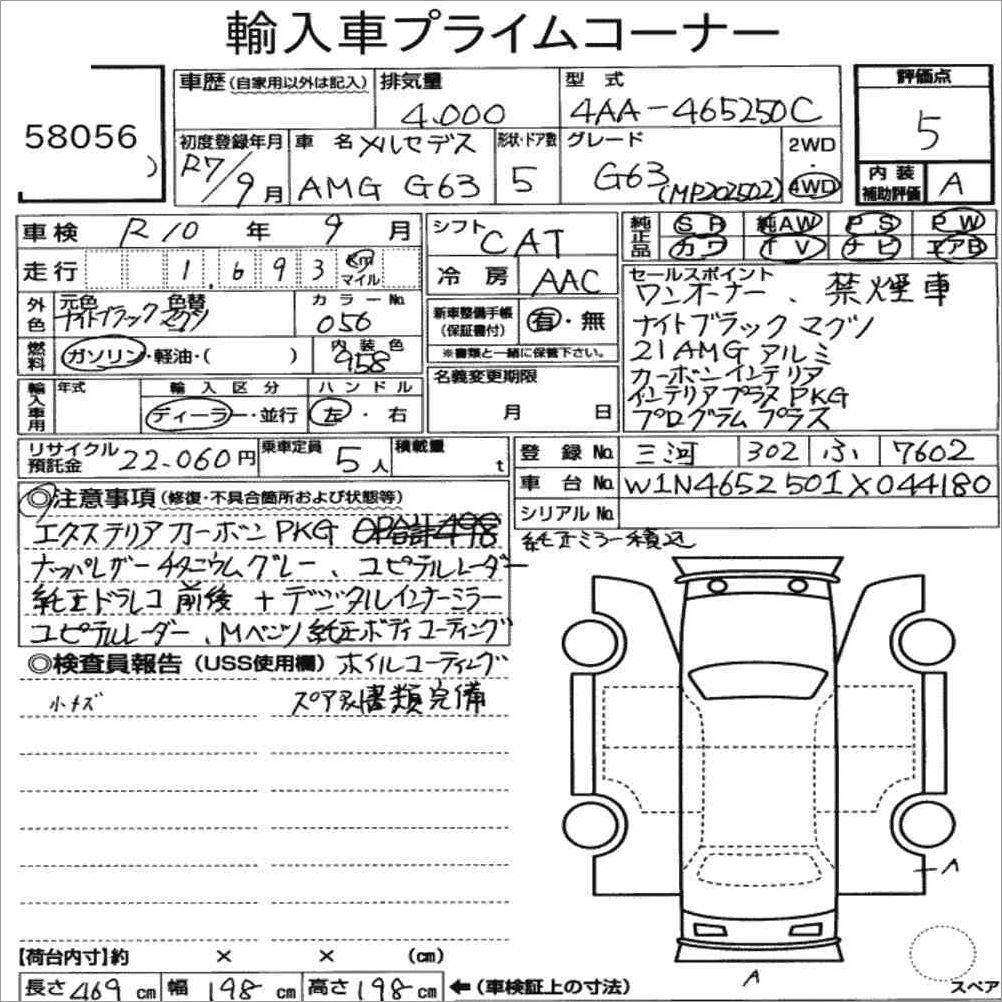 輸入車プライムコーナー
58056
車歴 (自家用以外は記入) 排気量 4.000 型式 4AA-465250C 評価点 5
初度登録年月 R7/9月 車名 メルセデス AMG G63 形状・ドア数 5 グレード G63 (MP202502) 2WD・4WD 内装補助評価 A
車検 R10年 9月 シフト CAT 純正品 SR 純AW PS PW
カワ TV ナビ エアB
走行 1.693 km マイル 冷房 AAC
外色 元色 ナイトブラック 色替 マグノ カラーNo. 056
燃料 ガソリン・軽油・( ) 内装色 958
新車整備手帳 (保証書付) 有・無
※書類と一緒に保管下さい。
セールスポイント
ワンオーナー、禁煙車
ナイトブラック マグノ
21AMGアルミ
カーボンインテリア
インテリアプラスPKG
プログラムプラス
輸入車用 年式 輸入区分 ディーラー・並行 ハンドル 左・右
名義変更期限 月 日
リサイクル預託金 22.060円 乗車定員 5人 積載量 t
登録No. 三河 302 ふ 7602
車台No. W1N4652501X044180
シリアルNo.
◎注意事項 (修復・不具合箇所および状態等)
純正ミラー積込
エクステリアカーボンPKG OP合計498
ナッパレザー チタニウムグレー、ユピテルレーダー
純正ドラレコ前後+デジタルインナーミラー
ユピテルレーダー、Mベンツ純正ボディコーティング
◎検査員報告 (USS使用欄) ホイルコーティング
小キズ
スペアキー書類完備
A
A
【荷台内寸】約 × × (cm)
長さ 469 cm 幅 198 cm 高さ 198 cm ←(車検証上の寸法)
スペア